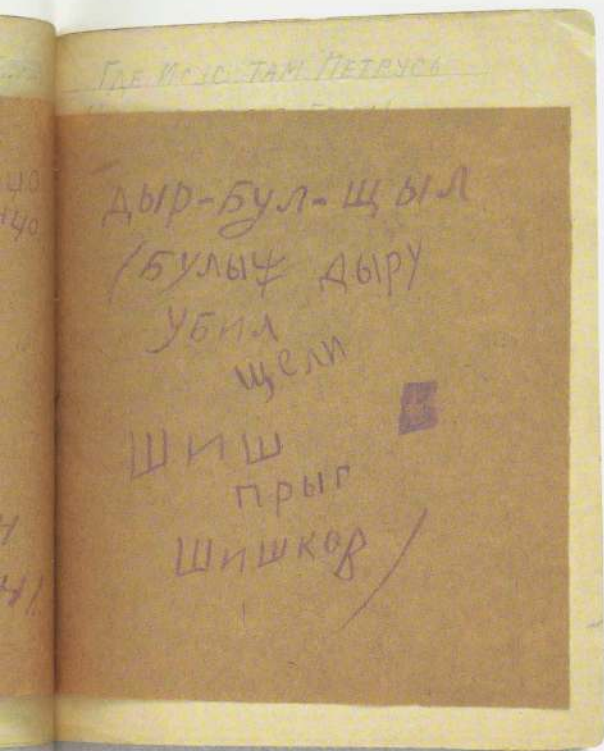 Где Исус там Петрусь
дыр-бул-щыл
(булыж дыру
убил
щели
шиш
прыг
шишков)